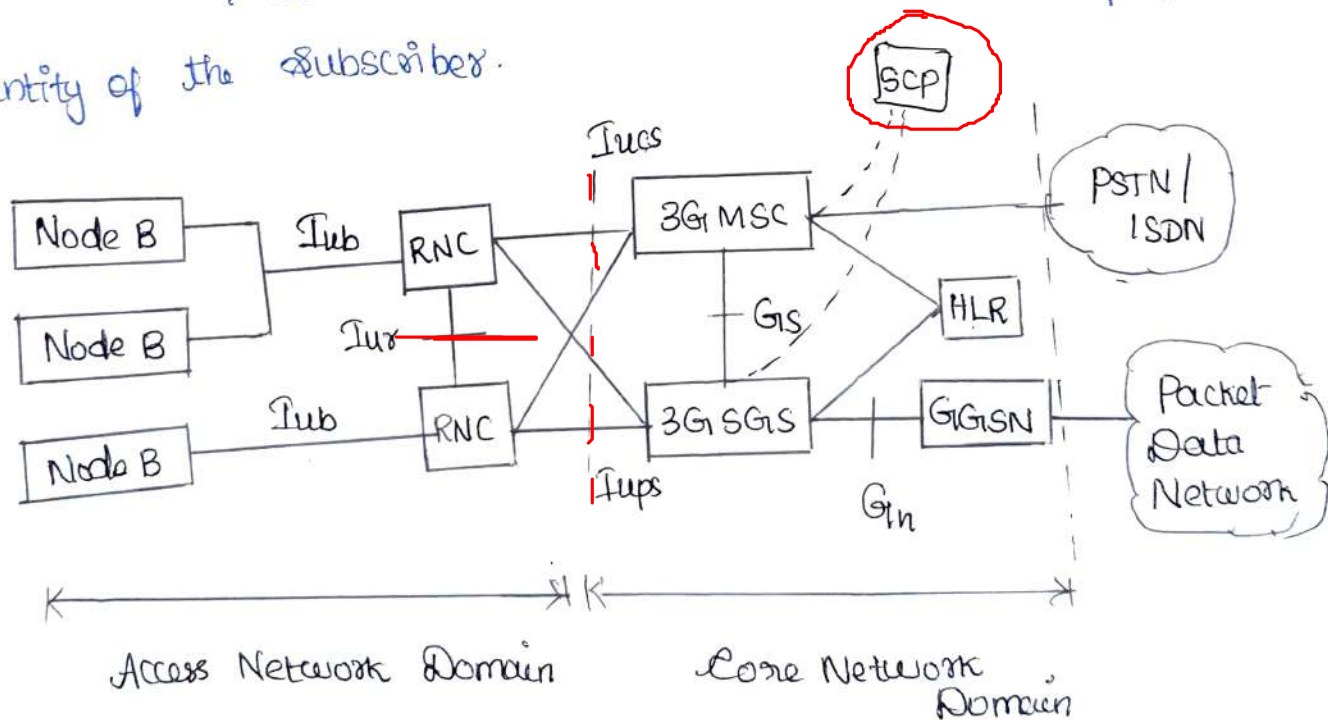 ntity of the Subscriber.
SCP
Iucs
PSTN/
ISDN
Node B
Iub
RNC
3G MSC
Node B
Iur
GS
HLR
Node B
Iub
RNC
3G SGS
GGSN
Packet
Data
Network
Iups
Gn
Access Network Domain
Core Network
Domain